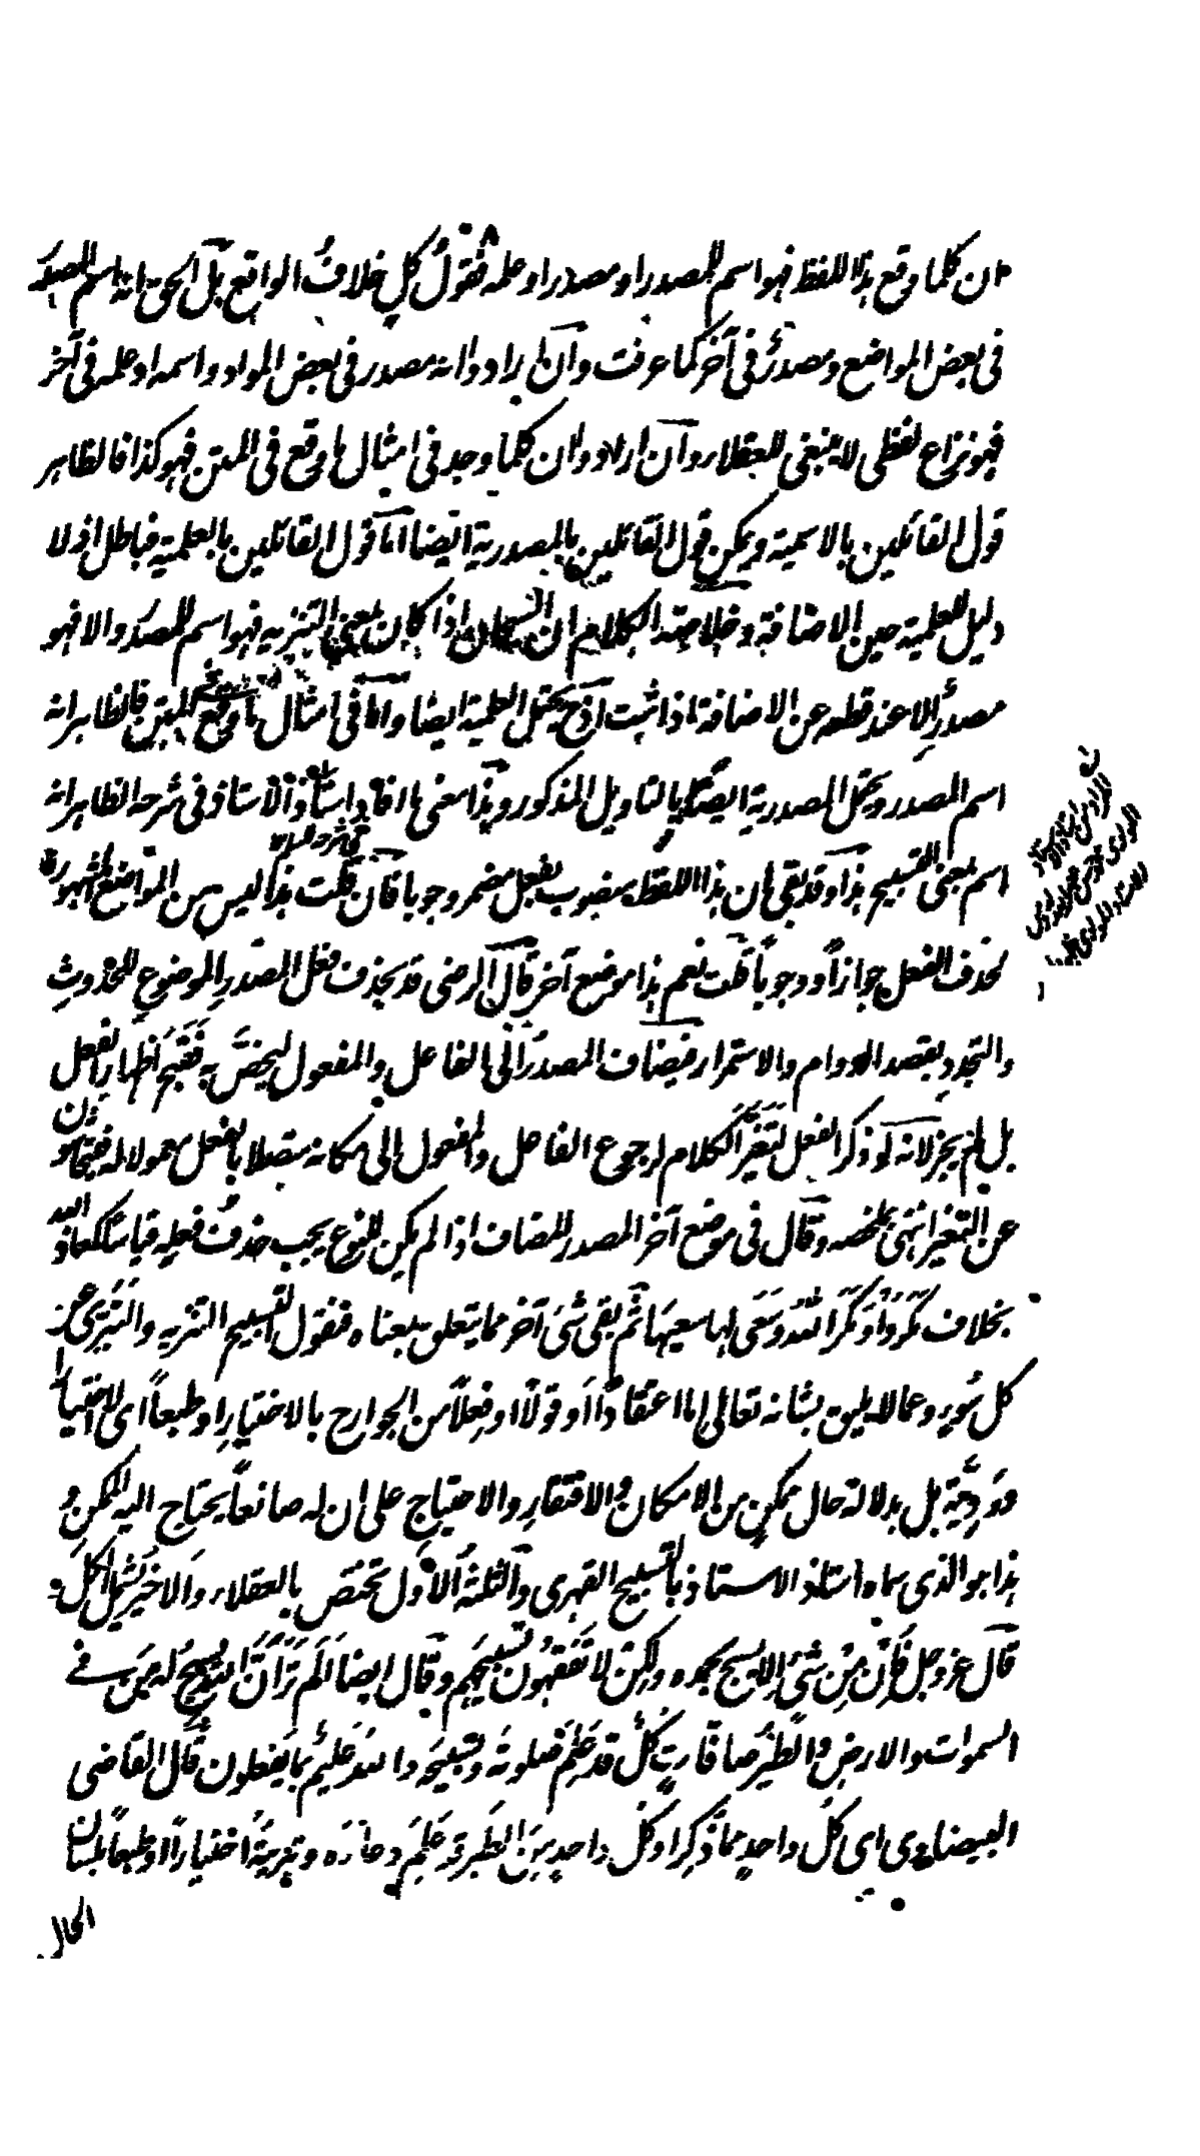 ان كلما وقع هذا اللفظ فهو اسم للمصدر او مصدر او علمه فقول كل خلاف الواقع بل الحق انه اسم المصدر
فى بعض المواضع ومصدر فى آخر كما عرفت وان ارادوا انه مصدر فى بعض المواد واسمه او علمه فى آخر
فهو نزاع لفظى لا ينبغى للعقلاء وان ارادوا ان كلما وجد فى امثال ما وقع فى المتن فهو كذا فالظاهر
قول القائلين بالاسمية ويمكن قول القائلين بالمصدرية ايضا اما قول القائلين بالعلمية فباطل اذ لا
دليل للعلمية حين الاضافة وخلاصة الكلام ان السبحان اذا كان بمعنى التنزيه فهو اسم للمصدر والا فهو
مصدر الا عند قطعه عن الاضافة اذا ثبت اذ ح يحتمل العلمية ايضا واما فى امثال ما وقع فى المتن فالظاهر انه
اسم المصدر ويحتمل المصدرية ايضا بالتاويل المذكور وهذا معنى ما افاد استاذ الاستاذ فى شرحه الظاهر انه
فى شرح السلم
اسم بمعنى التسبيح هذا وقد بقى ان هذا اللفظ منصوب بفعل مضمر وجوبا فان قلت هذا ليس من المواضع المشهورة
لحذف الفعل جوازا ووجوبا قلت نعم هذا موضع آخر قال الرضى قد يحذف فعل المصدر الموضوع للحدوث
والتجدد بقصد الدوام والاستمرار فيضاف المصدر الى الفاعل والمفعول ليختص به فقبح اظهار الفعل
بل لم يجز لانه لو ذكر الفعل لتغير الكلام لرجوع الفاعل والمفعول الى مكانه متصلا بالفعل معمولا له فيتحاشون
عن التغير انتهى ملخصه وقال فى موضع آخر المصدر المضاف اذا لم يكن للنوع يجب حذف فعله قياسا كمعاذ الله
بخلاف مكروا ومكر الله وسعى لها سعيها ثم بقى شئ آخر مما يتعلق بمعناه فنقول التسبيح التنزيه والتبرى عن
كل سوء وعما لا يليق بشانه تعالى اما اعتقادا او قولا او فعلا من الجوارح بالاختيار او طبعا اى لا اختيارا
بل بدلالة حال ممكن من الامكان والافتقار والاحتياج على ان له صانعا يحتاج اليه الممكن و
هذا هو الذى سماه استاذ الاستاذ بالتسبيح القهرى والثلثة الاول تختص بالعقلاء والاخير يشمل الكل و
قال عز وجل وان من شئ الا يسبح بحمده ولكن لا تفقهون تسبيحهم وقال ايضا الم تر ان الله يسبح له من فى
السموات والارض والطير صافات كل قد علم صلوته وتسبيحه والله عليم بما يفعلون قال القاضى
البيضاوى اى كل واحد مما ذكر او كل واحد من الطير قد علم دعاءه وتنزيهه اختيارا او طبعا بلسان
الحال